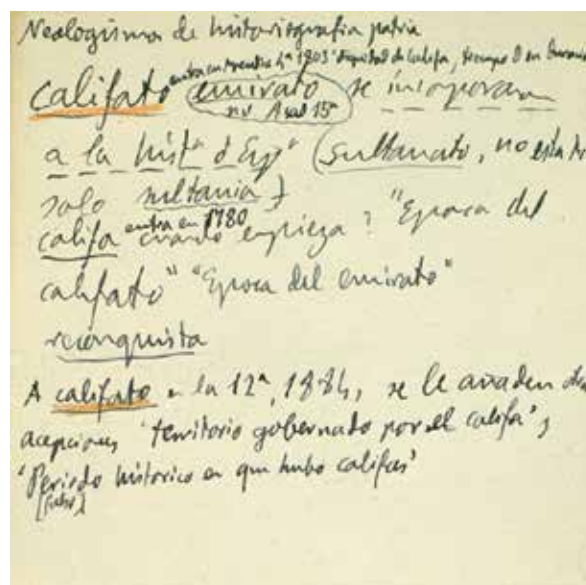 Neologismo de historiografia patria
entra en Apendice 4ª 1803 'dignidad de califa, tiempo
califato emirato se incorporan
no Acad 15ª
a la histª d Espª (sultanato, no está
solo sultania)
entra en 1780
califa cuando empieza? "Epoca del
califato" "Epoca del emirato"
reconquista
A califato en la 12ª, 1884, se le añaden dos
acepciones 'territorio gobernado por el califa' y
'Periodo historico en que hubo califas'